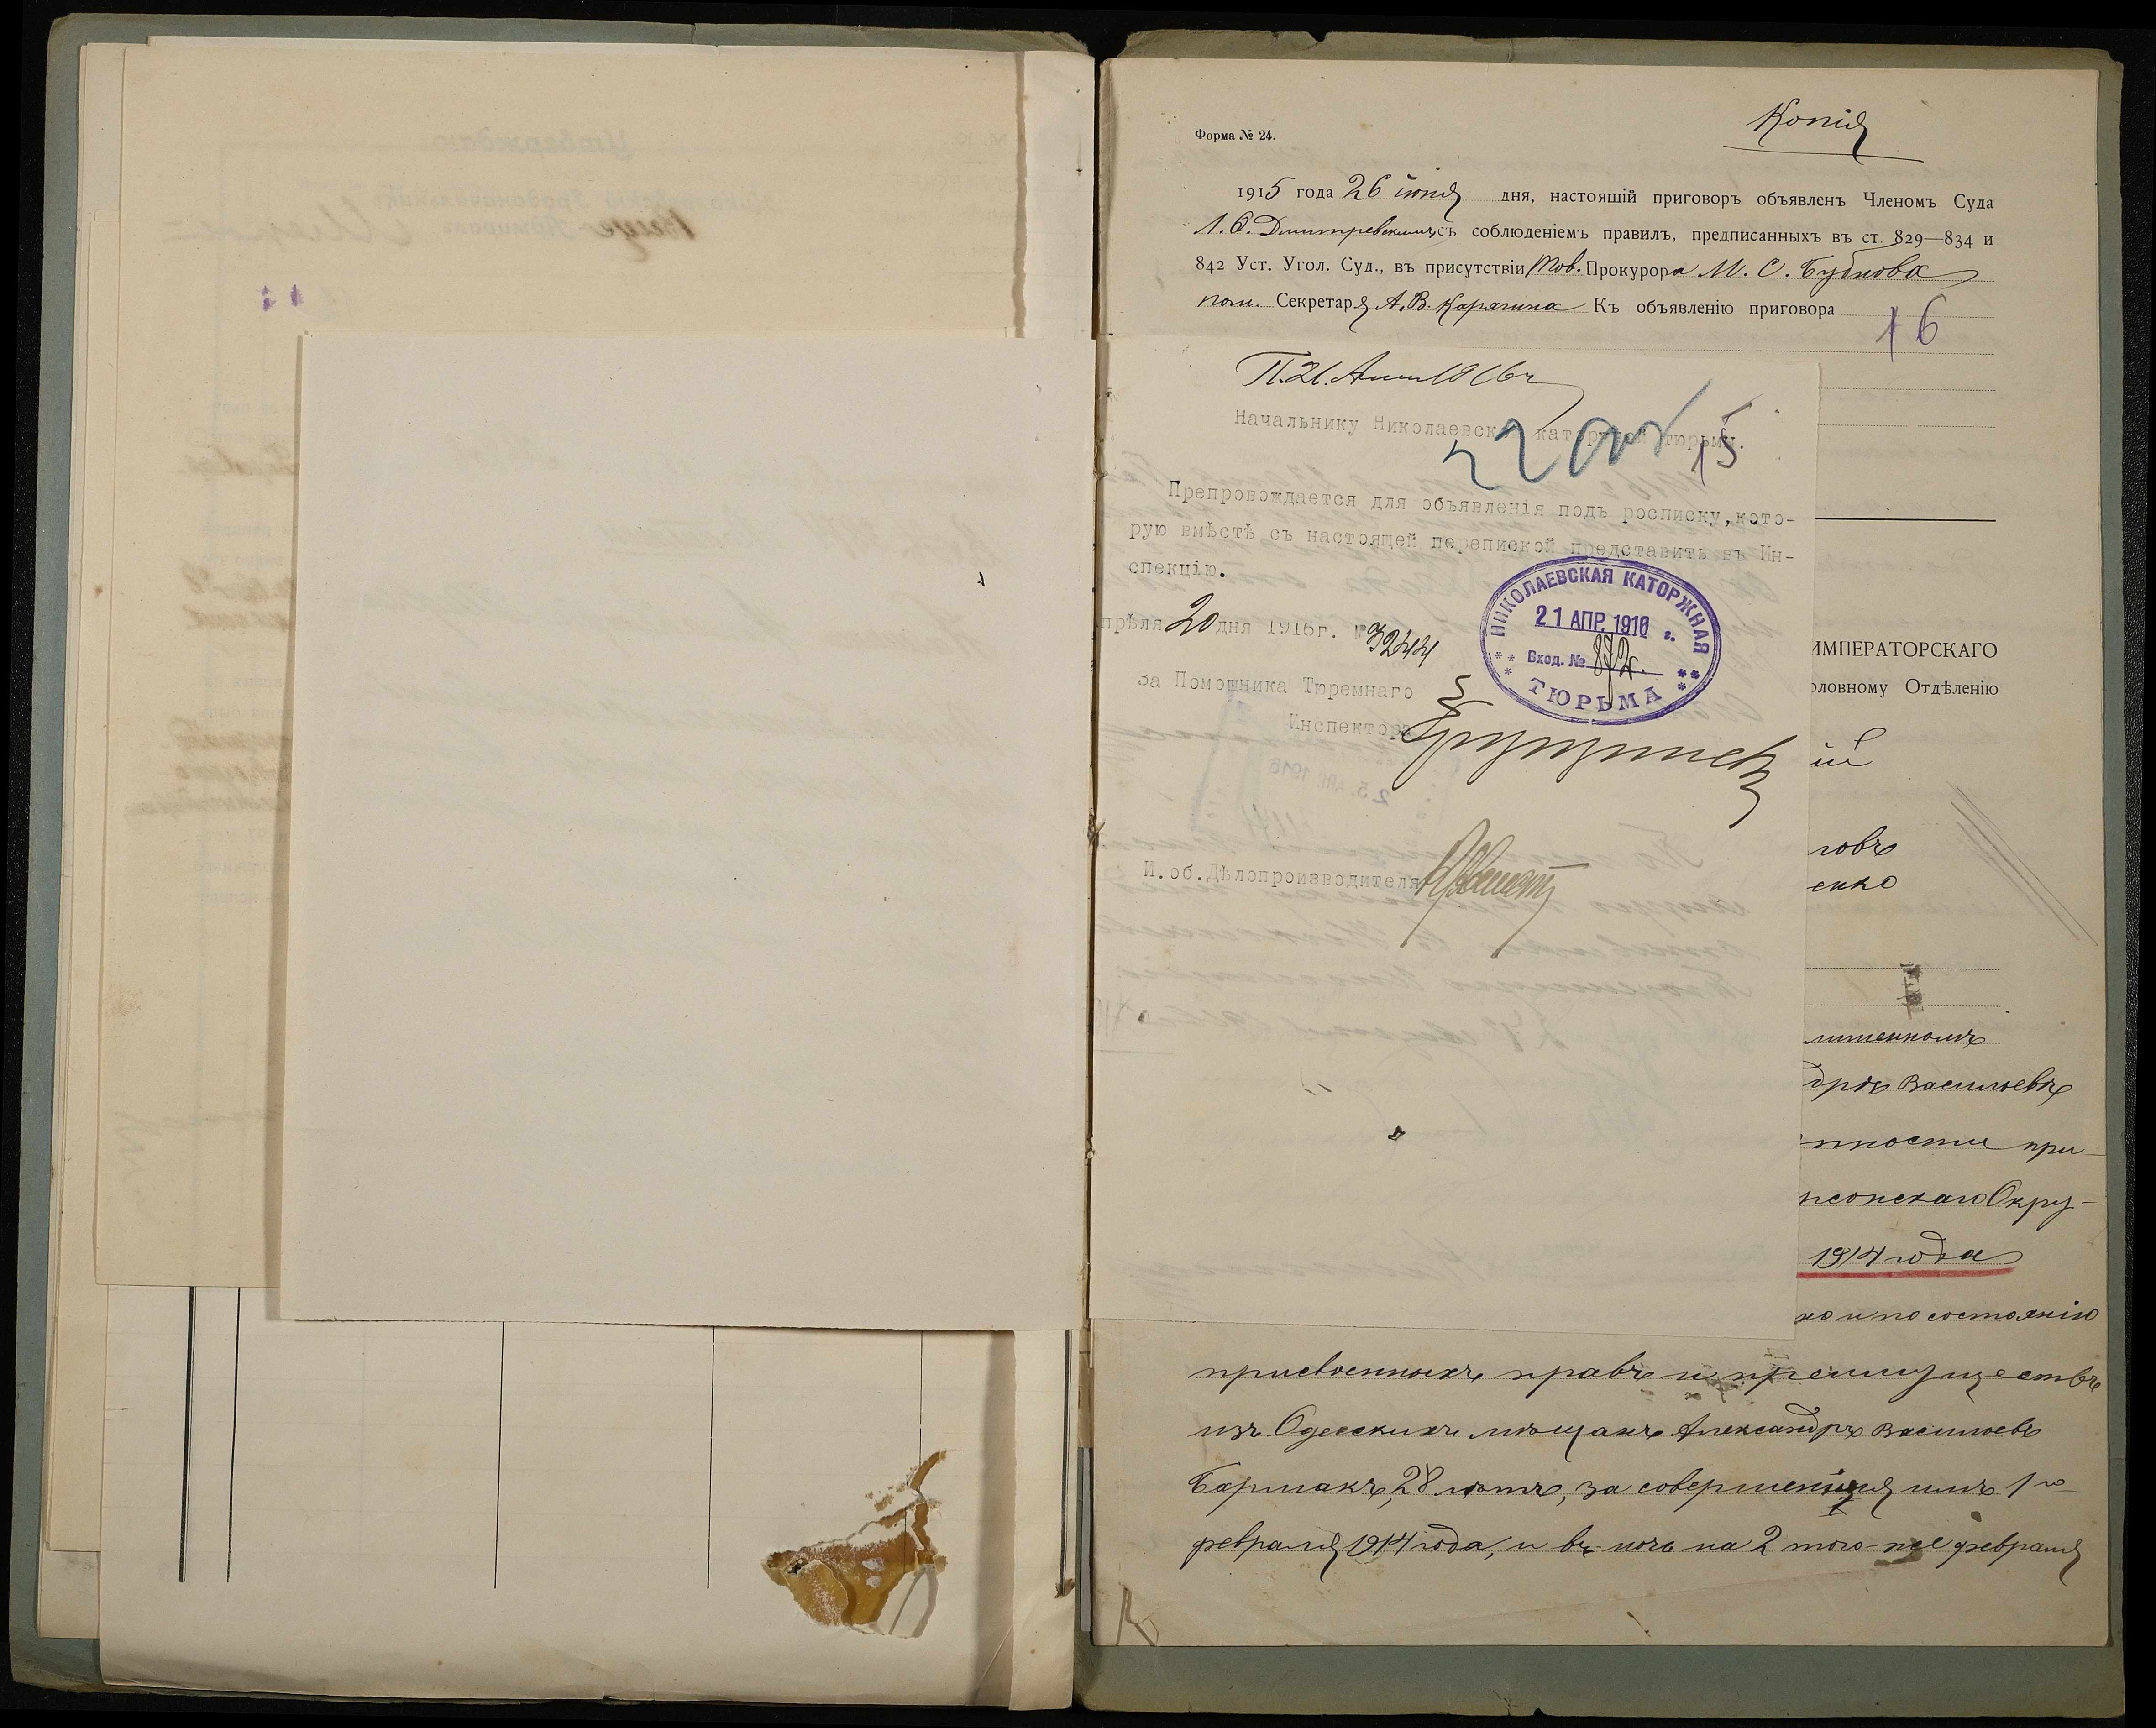 Копія
Форма № 24.
1915 года 26 іюня дня, настоящій приговоръ объявленъ Членомъ Суда
Л. Ѳ. Дмитревскимъ съ соблюденіемъ правилъ, предписанныхъ въ ст. 829—834 и
842 Уст. Угол. Суд., въ присутствіи Тов. Прокурора М. С. Бубнова
пом. Секретаря А. В. Карягина Къ объявленію приговора
16
П. 21. 1916 г
Начальнику Николаевской каторжной тюрьмы.
15
Препровождается для объявленія подъ росписку, кото-
рую вмѣстѣ съ настоящей перепиской представить въ Ин-
спекцію.
прѣля 20 дня 1916г. № 3244
НИКОЛАЕВСКАЯ КАТОРЖНАЯ
21 АПР. 1916 г.
Вход. № 872.
ТЮРЬМА
за Помощника Тюремнаго
Инспектора
И.об.Дѣлопроизводителя
ИМПЕРАТОРСКАГО
оловному Отдѣленію
ій
говъ
енко
лишенномъ
дрѣ Васильевѣ
нности при-
рсонскаго Окру-
1914 года
но и по состоянію
присвоенныхъ правъ и преимуществъ
изъ Одесскихъ мѣщанъ Александръ Васильевъ
Бармакъ, 28 лѣтъ, за совершенныя имъ 1го
февраля 1914 года, и въ ночь на 2 того-же февраля